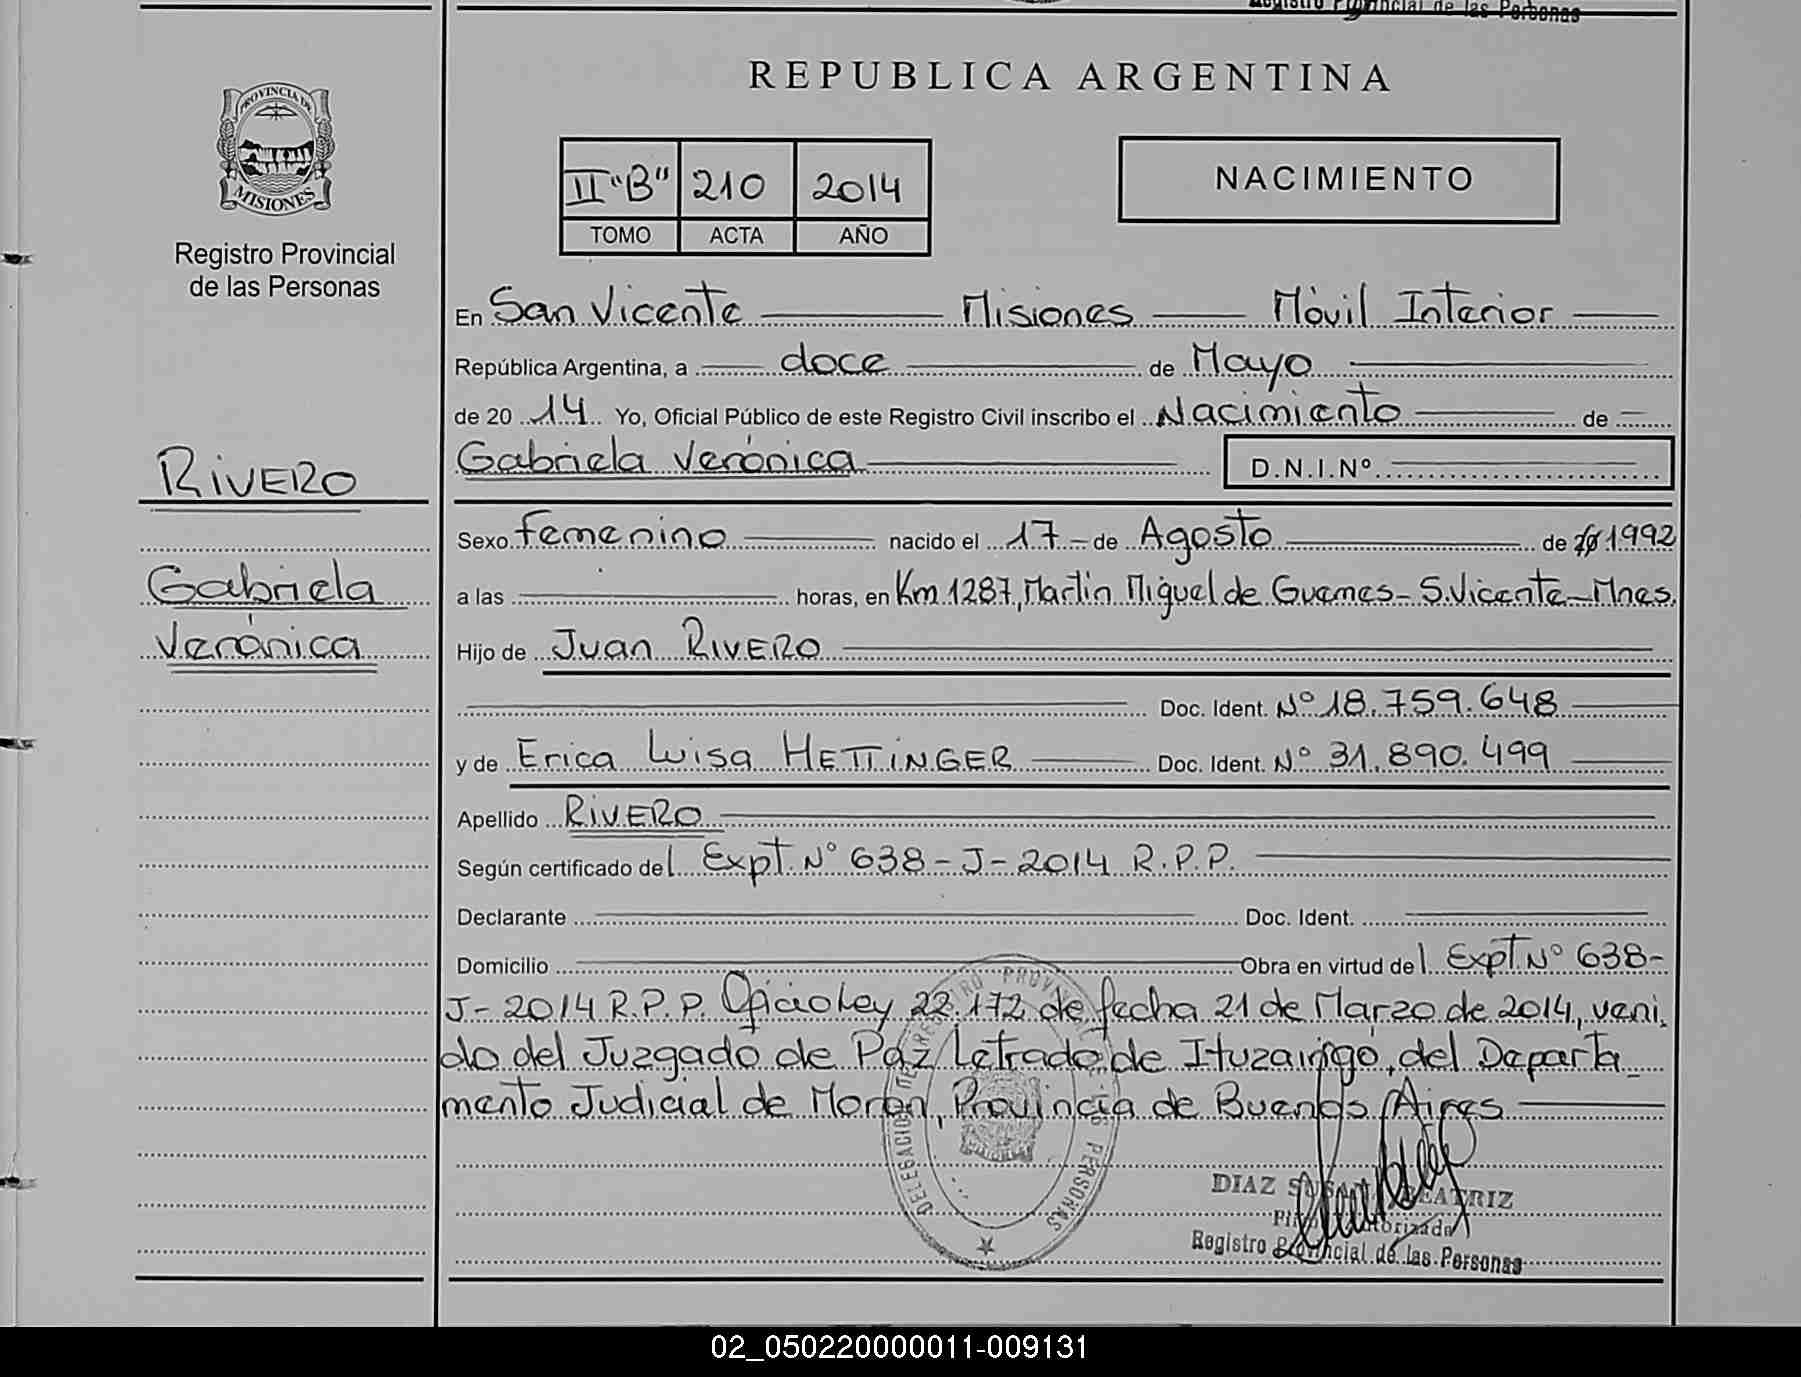 Registro Provincial de las Personas
REPUBLICA ARGENTINA
PROVINCIA DE
MISIONES
Registro Provincial
de las Personas
II "B" 210 2014
TOMO ACTA AÑO
NACIMIENTO
En San Vicente Misiones Móvil Interior
República Argentina, a doce de Mayo
de 20 14 Yo, Oficial Público de este Registro Civil inscribo el Nacimiento de
Gabriela Verónica D.N.I.Nº
RIVERO
Gabriela
Verónica
Sexo femenino nacido el 17 de Agosto de 1992
a las horas, en Km 1287, Martín Miguel de Guemes - S.Vicente - Mnes.
Hijo de Juan RIVERO
Doc. Ident. Nº 18.759.648
y de Erica Luisa HETTINGER Doc. Ident. Nº 31.890.499
Apellido RIVERO
Según certificado del Expt. Nº 638-J-2014 R.P.P.
Declarante Doc. Ident.
Domicilio Obra en virtud del Expt. Nº 638-
J-2014 R.P.P. Oficio Ley 22.172 de fecha 21 de Marzo de 2014, veni
do del Juzgado de Paz Letrado de Ituzaingó, del Departa
mento Judicial de Morón, Provincia de Buenos Aires
DELEGACION REGISTRO PROVINCIAL DE LAS PERSONAS
DIAZ BEATRIZ
Autorizada
Registro Provincial de las Personas
02_050220000011-009131